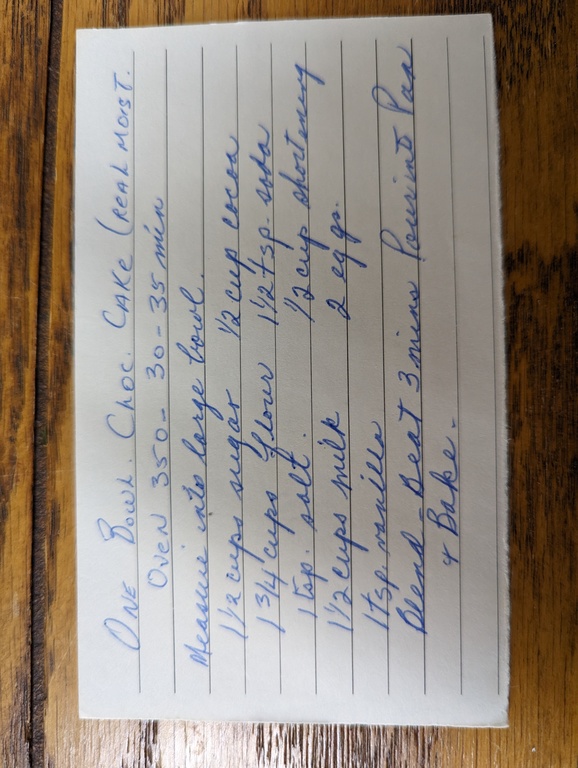 ONE BOWL. CHOC. CAKE (REAL MOIST.
OVEN 350 - 30 - 35 min
Measure into large bowl.
1 1/2 cups sugar 1/2 cup cocoa
1 3/4 cups flour 1 1/2 tsp. soda
1 tsp. salt. 1/2 cup shortening
1 1/2 cups milk 2 eggs.
1 tsp. vanilla
Blend - Beat 3 mins Pour into Pan
& Bake.